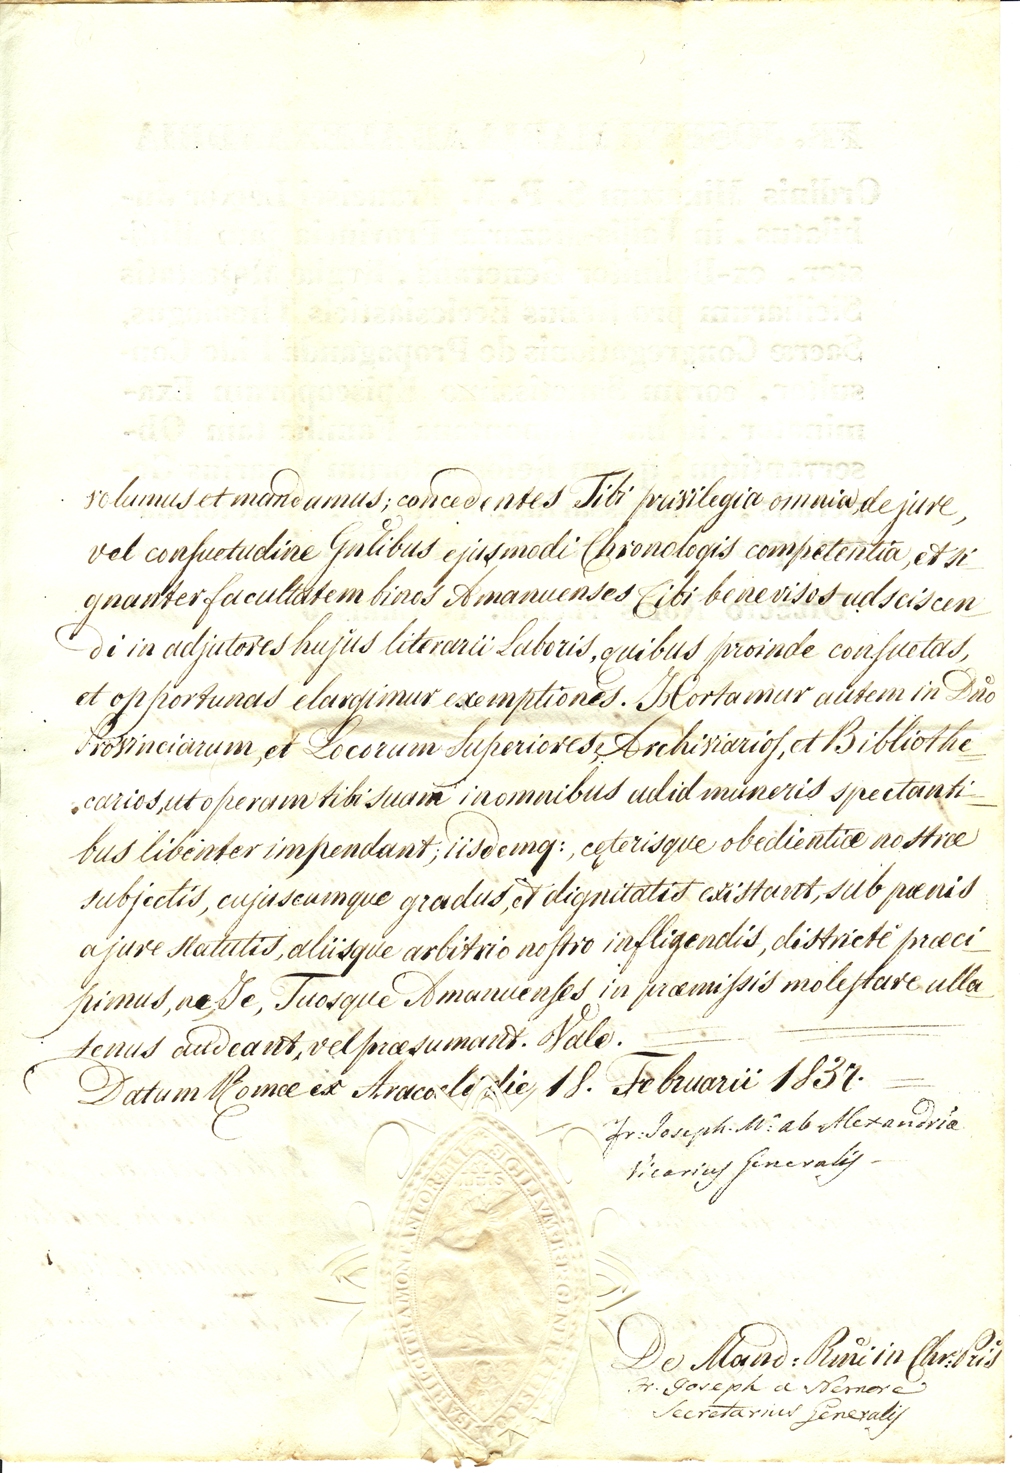 volumus et mandamus; concedentes Tibi privilegia omnia, de jure,
vel consuetudine Gn̄libus ejusmodi Chronologis competentia, et si-
gnanter facultatem binos Amanuenses Tibi benevisos adsciscen
di in adjutores hujus literarii Laboris, quibus proinde consuetas,
et opportunas elargimur exemptiones. Hortamur autem in Dn̄o
Provinciarum, et Locorum Superiores, Archivarios, et Bibliothe=
carios, ut operam tibi suam in omnibus ad id muneris spectanti=
bus libenter impendant; iisdemq:, ceterisque obedientiæ nostræ
subjectis, cujuscumque gradus, et dignitatis existant, sub pœnis
a jure statutis, aliisque arbitrio nostro infligendis, districtè præci-
pimus, ne Te, Tuosque Amanuenses in præmissis molestare ulla
tenus audeant, vel præsumant. Vale.
Datum Romæ ex Aracoeli die 18. Februarii 1837.
Fr: Joseph. M.ª ab Alexandria
Vicarius Generalis
De Mand: Rm̄i in Chr: Pr̄is
Fr. Joseph a Nemore
Secretarius Generalis